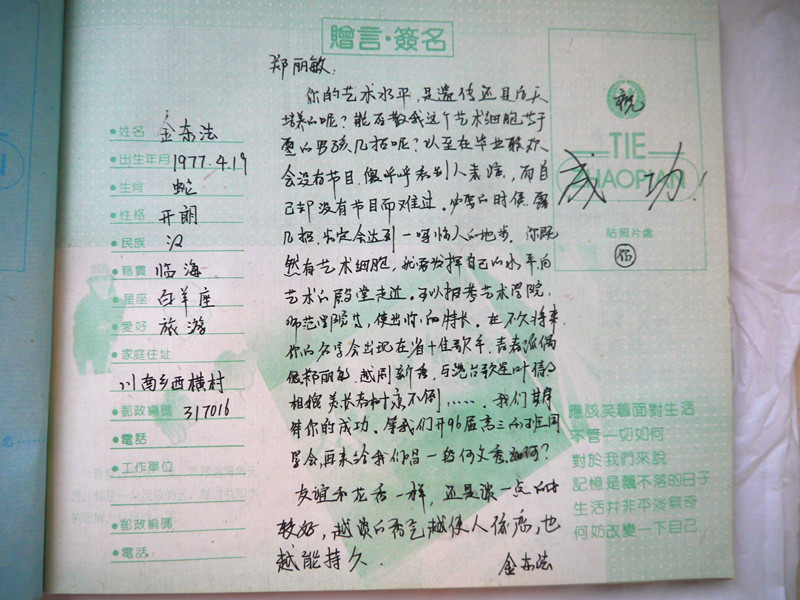 贈言·簽名
郑丽敏:
你的艺术水平,是遗传还是后天
培养的呢?能否教我这个艺术细胞等于
零的男孩几招呢?以至在毕业联欢
会没有节目,傻乎乎看别人表演,而自
己却没有节目而难过。必要的时候,露
几招,肯定会达到一鸣惊人的地步。你既
然有艺术细胞,就要发挥自己的水平向
艺术的殿堂走近。可以报考艺术学院,
师范学院等,使出你的特长。在不久将来
你的名字会出现在省十佳歌手,青春派偶
像郑丽敏,越剧新秀,与港台歌星叶倩文
相媲美
我们期
待你的成功。等我们开96届高三(4)班同
学会,再来给我们唱一段何文秀如何?
友谊和花香一样,还是淡一点的比
较好,越淡的香气越使人依恋,也
越能持久。
金东法
姓名 金东法
出生年月 1977.4.19
生肖 蛇
性格 开朗
民族 汉
籍貫 临海
星座 白羊座
愛好 旅游
家庭住址
川南乡西横村
郵政編碼 317016
電話
工作單位
郵政編碼
電話
祝
TIE
ZHAOPIAN
成功!
貼照片處
應該笑着面對生活
不管一切如何
對於我們來說
記憶是飄不落的日子
生活并非平淡無奇
何妨改變一下自己